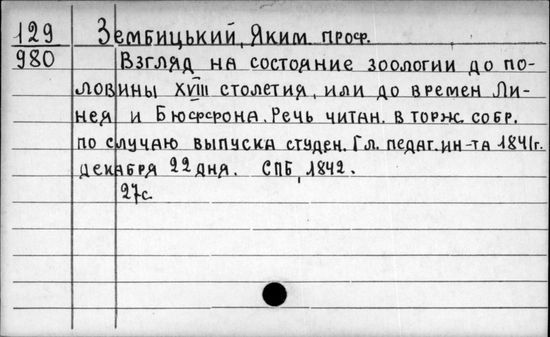 129 Зембицький, Яким проф.
980 Взгляд на состояние зоологии до по-
ловины XVIII столетия, или до времен Ли-
нея и Бюффона. Речь читан. в торж. собр.
по случаю выпуска студен. Гл. педаг. ин-та 1841г.
декабря 22 дня. СПБ, 1842.
27с.